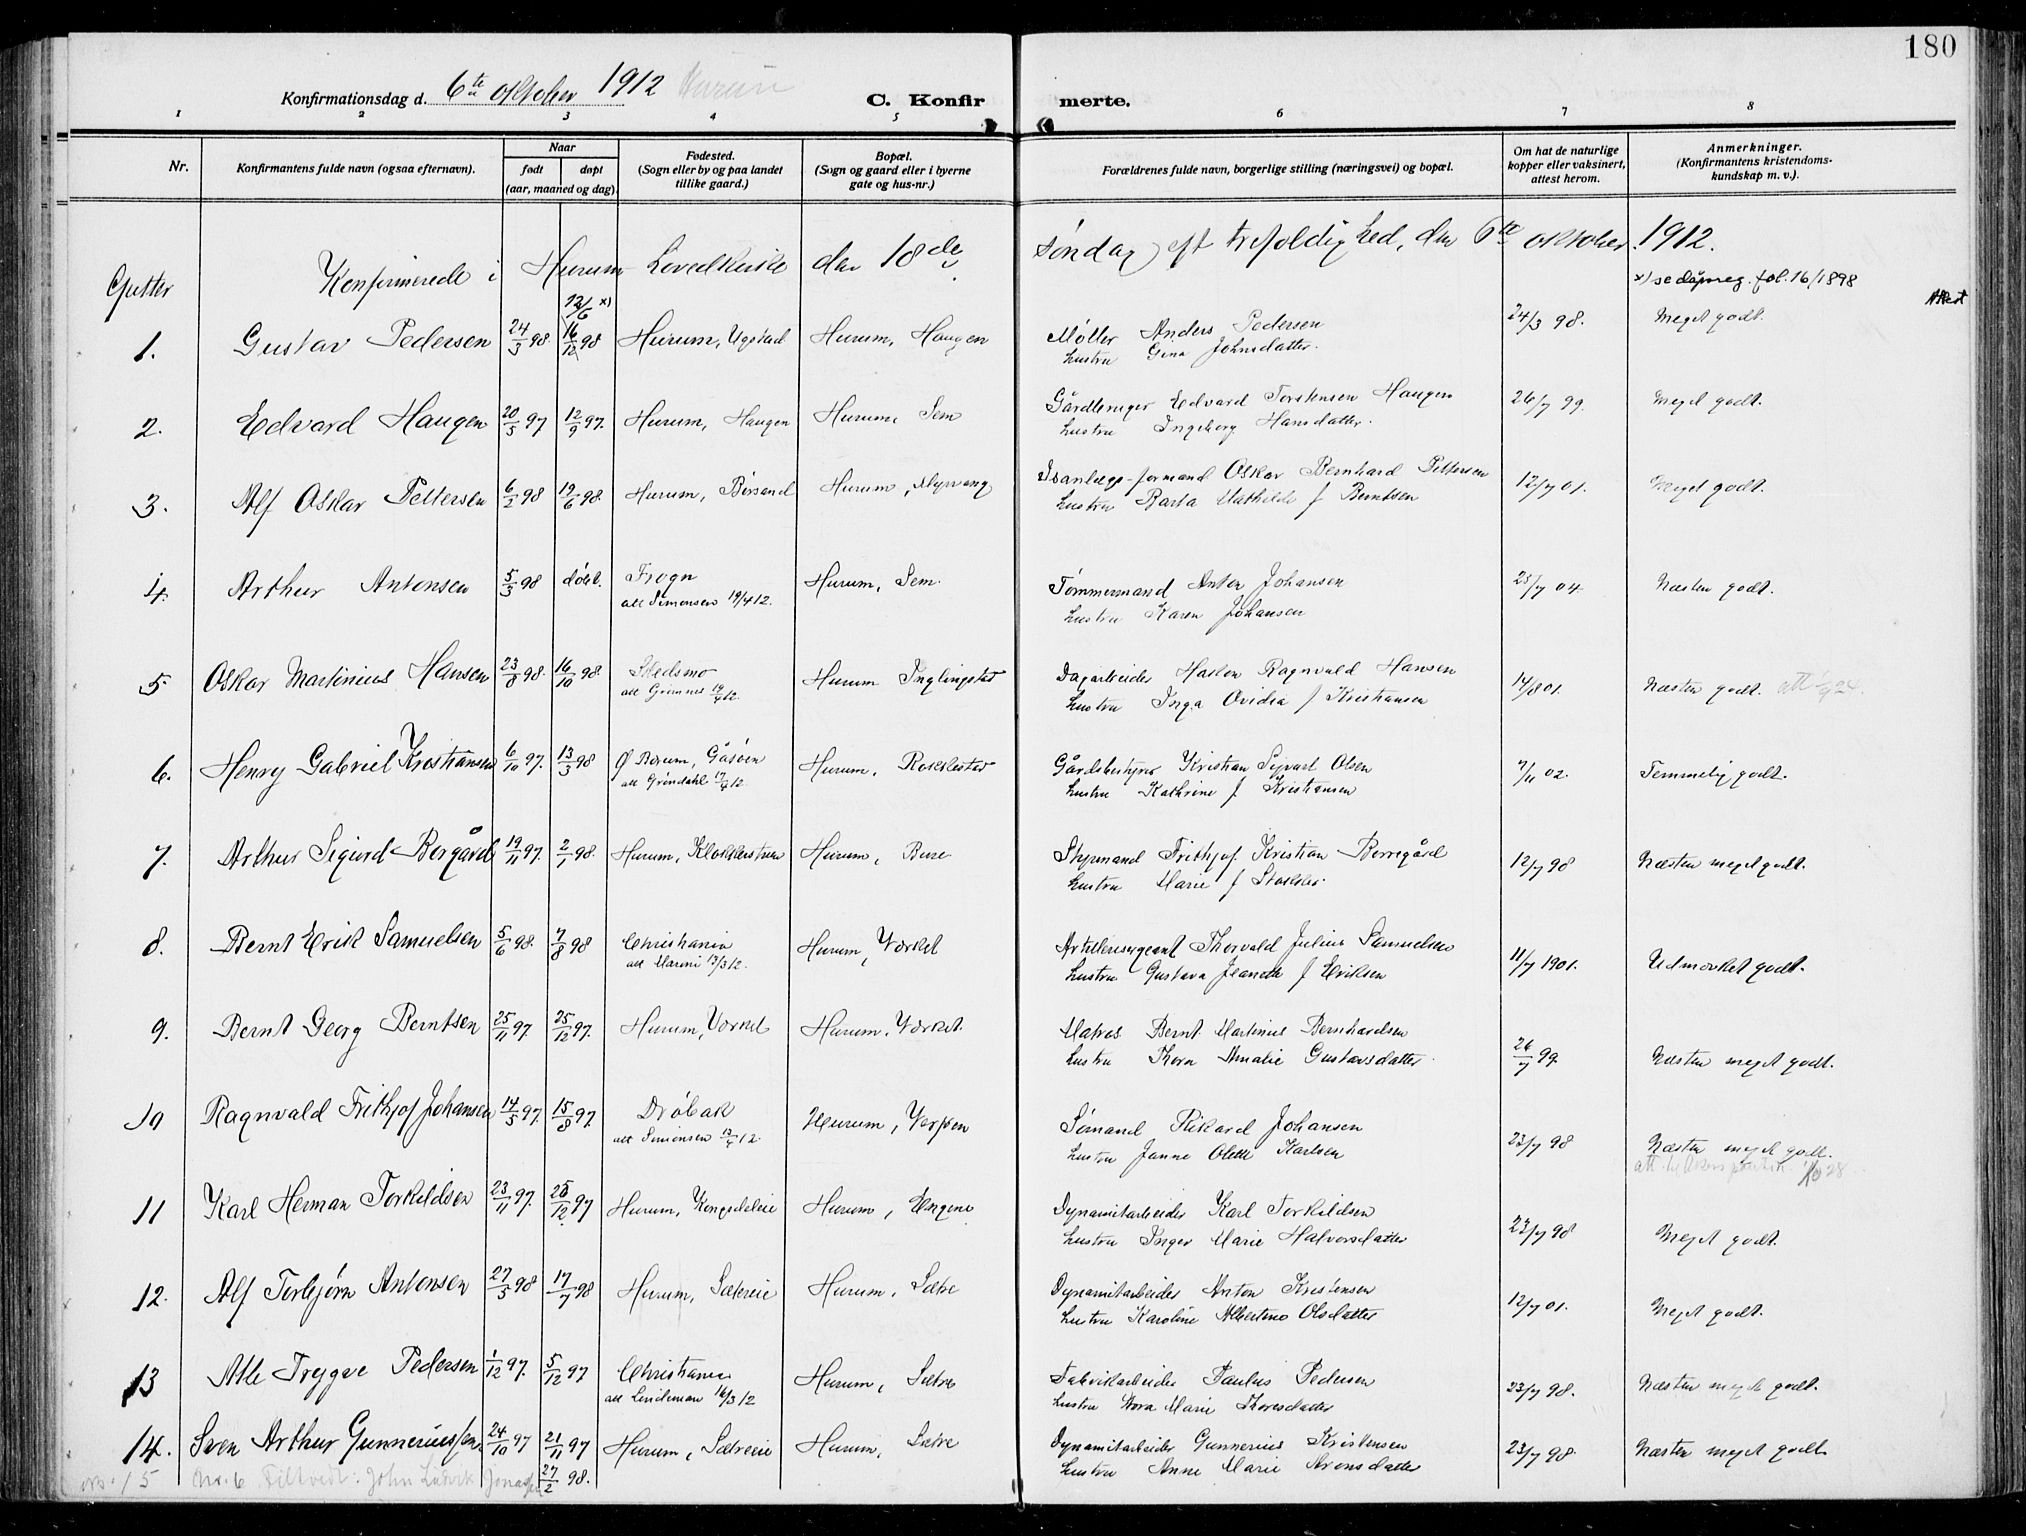 180
Konfirmationsdag d. 6te oktober 1912 Hurum
C. Konfirmerte.
1 2 3 4 5 6 7 8
Nr.
Konfirmantens fulde navn (ogsaa efternavn).
Naar
født døpt
(aar, maaned og dag).
Fødested.
(Sogn eller by og paa landet
tillike gaard.)
Bopæl.
(Sogn og gaard eller i byerne
gate og hus-nr.)
Forældrenes fulde navn, borgerlige stilling (næringsvei) og bopæl.
Om hat de naturlige
kopper eller vaksinert,
attest herom.
Anmerkninger.
(Konfirmantens kristendoms-
kundskap m. v.).
Gutter
Konfirmerede i Hurum Hovedkirke den 18de søndag eft trefoldighed, den 6te oktober 1912.
x) se dåpsreg. fol. 16/1898
12/6 x)
1. Gustav Pedersen 24/3 98. 16/12 98 Hurum, Ugstad Hurum, Haugen Møller Anders Pedersen 24/3 98. Meget godt.
hustru Gina Johnsdatter.
2. Edvard Haugen 20/5 97 12/9 97. Hurum, Haugen Hurum, Sem Gårdbruger Edvard Torstensen Haugen 26/7 99. Meget godt.
hustru Ingeborg Hansdatter.
3. Alf Oskar Pettersen 6/2 98 19/6 98. Hurum, Båsand Hurum, Myrvang Isanlægs-formand Oskar Bernhard Pettersen 12/7 01. Meget godt.
hustru Mathilde f Berntsen
4. Arthur Antonsen 5/3 98 døbt. Frogn Hurum, Sem. Tømmermand Anton Johansen 25/7 04. Næsten godt.
att Simonsen 19/4 12. hustru Karen Johansen
5 Oskar Martinius Hansen 23/8 98. 16/10 98. Skedsmo Hurum Inglingstad Dagarbeider Hakon Ragnvald Hansen 14/8 01. Næsten godt.
att Grimnes 12. hustru Inga Ovidia f Kristiansen
6. Henry Gabriel Kristiansen 6/10 97. 13/3 98 Ø Bærum, Gåsøen Hurum, Rokkestad Gårdsbestyrer Kristian Sigvart Olsen 7/11 02. Temmelig godt.
att Grøndahl 17/4 12. hustru Kathrine f Kristiansen
7. Arthur Sigurd Borgård 19/11 97. 2/1 98. Hurum, Klokkerstuen Hurum, Bure Styrmand Frithjof Kristian Borregård 12/7 98 Næsten meget godt.
hustru Marie f Stokker.
8. Bernt Erik Samuelsen 5/6 98. 7/8 98 Christiania Hurum, Værket Artillerisergeant Thorvald Julius Samuelsen 11/7 1901. Udmærket godt.
att 13/3 12. hustru Gustava Jeanette f Eriksen
9. Bernt Georg Berntsen 25/11 97. 25/12 97. Hurum, Værket Hurum, Værket. Matros Bernt Martinius Bernhardsen 26/7 99. Næsten meget godt.
hustru Thora Amalie Gustavsdatter.
10 Ragnvald Frithjof Johansen 14/5 97. 15/8 97. Drøbak Hurum, Verpen Sømand Rikard Johansen 23/7 98 Næsten meget godt.
att Simonsen 12/4 12. hustru Janne Olette Karlsen
11 Karl Herman Torkildsen 23/11 97. 25/12 97 Hurum, Kongsdeleie Hurum, Engene Dynamitarbeider Karl Torkildsen 23/7 98 Meget godt.
hustru Inger Marie Halvorsdatter
12. Alf Torbjørn Antonsen 27/5 98 17/7 98 Hurum, Sætreeie Hurum, Sætre Dynamitarbeider Anton Kristensen 12/7 01. Meget godt.
hustru Karoline Albertine Olsdatter
13 Atle Trygve Pedersen 1/12 97. 5/12 97 Christiania Hurum, Sætre Fabrikarbeider Paulus Pedersen 23/7 98. Næsten meget godt.
att Lindeman 16/3 12 hustru Nora Marie Thoresdatter
14. Sven Arthur Gunneriussen 24/10 97 21/11 97 Hurum, Sætreeie Hurum, Sætre Dynamitarbeider Gunnerius Kristensen 23/7 98. Næsten meget godt.
hustru Anne Marie Aronsdatter
15 Nr. 6 Filtvedt: John Ludvik Jonassen 27/2 98.